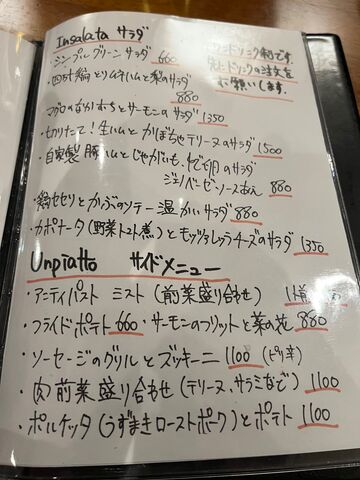 Insalata サラダ
ワンドリンク制です。
先にドリンクの注文を
お願いします。
・シンプルグリーンサラダ 660
880
マグロのなかおちとサーモンのサラダ 1350
・切りたて!生ハムとかぼちゃテリーヌのサラダ 1500
・自家製 豚ハムとじゃがいも、ゆで卵のサラダ
ジェノベーゼソースあえ 880
鶏セセリとかぶのソテー温かいサラダ 880
・カポナータ(野菜トマト煮)とモッツァレッラチーズのサラダ 1350
Unpiatto サイドメニュー
・アンティパスト ミスト(前菜盛り合せ) 1人前
・フライドポテト 660 ・サーモンのフリットと菜の花 880
・ソーセージのグリルとズッキーニ 1100 (ピリ辛)
・肉前菜盛り合せ(テリーヌ、サラミなど) 1100
・ポルケッタ(うずまきローストポーク)とポテト 1100